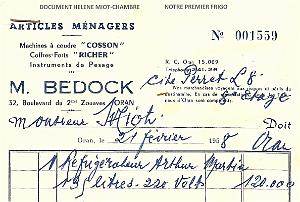 DOCUMENT HELENE MIOT-CHAMBRE NOTRE PREMIER FRIGO
ARTICLES MÉNAGERS
N° 001559
Machines à coudre "COSSON"
Coffres-Forts "RICHER"
Instruments de Pesage
R. C. Oran 15.089
Téléphone
M. BEDOCK
Cité Perret L8
32, Boulevard du 2me Zouaves ORAN
Etage
Monsieur Miot Doit
Oran, le 21 février 1958 Oran
1 Réfrigérateur Arthur Martin
litres - 220 Volts 120.000